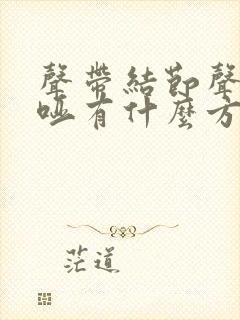 聲帶結節聲
啞有什麼方
茫道